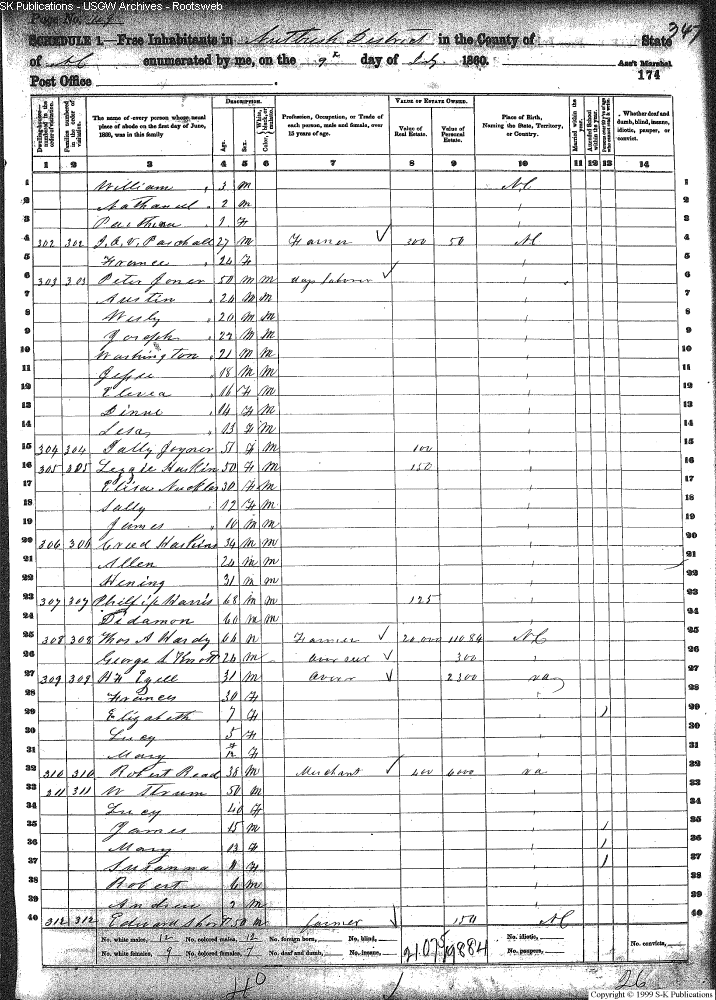 SK Publications - USGW Archives - Rootsweb
Page No. 347
SCHEDULE 1.—Free Inhabitants in District in the County of State
of NC enumerated by me, on the 9th day of July 1860. Ass't Marshal
Post Office 174
DESCRIPTION. VALUE OF ESTATE OWNED.
Dwelling-houses—numbered in the order of visitation. Families numbered in the order of visitation. The name of every person whose usual place of abode on the first day of June, 1860, was in this family. Age. Sex. Color, White, black, or mulatto. Profession, Occupation, or Trade of each person, male and female, over 15 years of age. Value of Real Estate. Value of Personal Estate. Place of Birth, Naming the State, Territory, or Country. Married within the year. Attended School within the year. Persons over 20 years of age who cannot read & write. Whether deaf and dumb, blind, insane, idiotic, pauper, or convict.
1 2 3 4 5 6 7 8 9 10 11 12 13 14
1 William 3 m NC 1
2 Nathaniel 2 m 2
3 1 F 3
4 302 302 Paschall 27 m Farmer 300 50 NC 4
5 France 24 F 5
6 303 303 Peter Jones 50 m m day laborer 6
7 Austin 24 m m 7
8 Wesly 20 m m 8
9 Joseph 22 m m 9
10 Washington 21 m m 10
11 Jesse 18 m m 11
12 16 F m 12
13 14 F m 13
14 13 F m 14
15 304 304 Joyner 51 F m 100 15
16 305 305 Haskin 50 F m 150 16
17 Elisa 30 F m 17
18 Sally 12 F m 18
19 James 10 m m 19
20 306 306 Creed Haskins 34 m m 20
21 Allen 24 m m 21
22 Hening 31 m m 22
23 307 307 Phillip Harris 68 m m 125 23
24 60 m m 24
25 308 308 Thos A Hardy 66 m Farmer 20,000 11084 NC 25
26 George S Knott 26 m over seer 300 26
27 309 309 Ezell 31 m 2300 va 27
28 Frances 30 F 28
29 Elizabeth 7 F 29
30 Lucy 5 F 30
31 Mary F 31
32 310 310 Robert Read 38 m Merchant 400 6000 va 32
33 311 311 W Strum 50 m 33
34 Lucy 40 F 34
35 James 15 m 35
36 Mary 13 F 36
37 Susanna 11 F 37
38 Robert 6 m 38
39 Andrew 2 m 39
40 312 312 Edward Short 50 m farmer 150 NC 40
No. white males, 12 No. colored males, 12 No. foreign born, No. blind, 21075 19884 No. idiotic, No. convicts,
No. white females, 9 No. colored females, 7 No. deaf and dumb, No. insane, No. paupers,
40 26
Copyright © 1999 S-K Publications